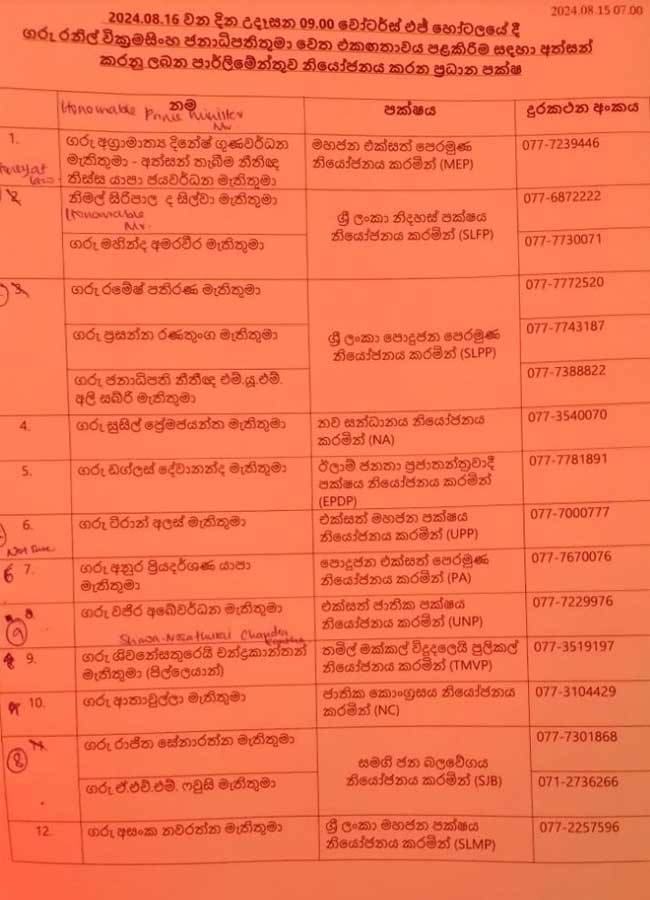 2024.08.15 07.00
2024.08.16 වන දින උදෑසන 09.00 වෝටර්ස් එජ් හෝටලයේ දී
ගරු රනිල් වික්‍රමසිංහ ජනාධිපතිතුමා වෙත එකඟතාවය පළකිරීම සඳහා අත්සන්
කරනු ලබන පාර්ලිමේන්තුව නියෝජනය කරන ප්‍රධාන පක්ෂ
Honourable Prime Minister
Mr
නම පක්ෂය දුරකථන අංකය
1. ගරු අග්‍රාමාත්‍ය දිනේෂ් ගුණවර්ධන මහජන එක්සත් පෙරමුණ 077-7239446
මැතිතුමා - අත්සන් තැබීම නීතිඥ නියෝජනය කරමින් (MEP)
තිස්ස යාපා ජයවර්ධන මැතිතුමා
law
2 නිමල් සිරිපාල ද සිල්වා මැතිතුමා ශ්‍රී ලංකා නිදහස් පක්ෂය 077-6872222
Honourable නියෝජනය කරමින් (SLFP)
Mr.
ගරු මහින්ද අමරවීර මැතිතුමා 077-7730071
3. ගරු රමේෂ් පතිරණ මැතිතුමා 077-7772520
ගරු ප්‍රසන්න රණතුංග මැතිතුමා ශ්‍රී ලංකා පොදුජන පෙරමුණ 077-7743187
නියෝජනය කරමින් (SLPP)
ගරු ජනාධිපති නීතිඥ එම්.යූ.එම්. 077-7388822
අලි සබ්රි මැතිතුමා
4. ගරු සුසිල් ප්‍රේමජයන්ත මැතිතුමා නව සන්ධානය නියෝජනය 077-3540070
කරමින් (NA)
5. ගරු ඩග්ලස් දේවානන්ද මැතිතුමා ඊලාම් ජනතා ප්‍රජාතන්ත්‍රවාදී 077-7781891
පක්ෂය නියෝජනය කරමින්
(EPDP)
6. ගරු ටිරාන් අලස් මැතිතුමා එක්සත් මහජන පක්ෂය 077-7000777
නියෝජනය කරමින් (UPP)
Not Sure
6 7. ගරු අනුර ප්‍රියදර්ශණ යාපා පොදුජන එක්සත් පෙරමුණ 077-7670076
මැතිතුමා නියෝජනය කරමින් (PA)
8. ගරු වජිර අබේවර්ධන මැතිතුමා එක්සත් ජාතික පක්ෂය 077-7229976
9 නියෝජනය කරමින් (UNP)
Chandra
9. ගරු ශිවනේසතුරෙයි චන්ද්‍රකාන්තන් තමිල් මක්කල් විඩුදලෙයි පුලිකල් 077-3519197
මැතිතුමා (පිල්ලෙයාන්) නියෝජනය කරමින් (TMVP)
10. ගරු ආතාවුල්ලා මැතිතුමා ජාතික කොංග්‍රසය නියෝජනය 077-3104429
කරමින් (NC)
ගරු රාජිත සේනාරත්න මැතිතුමා 077-7301868
8 සමගි ජන බලවේගය
නියෝජනය කරමින් (SJB)
ගරු ඒ.එච්.එම්. ෆවුසි මැතිතුමා 071-2736266
12. ගරු අසංක නවරත්න මැතිතුමා ශ්‍රී ලංකා මහජන පක්ෂය 077-2257596
නියෝජනය කරමින් (SLMP)